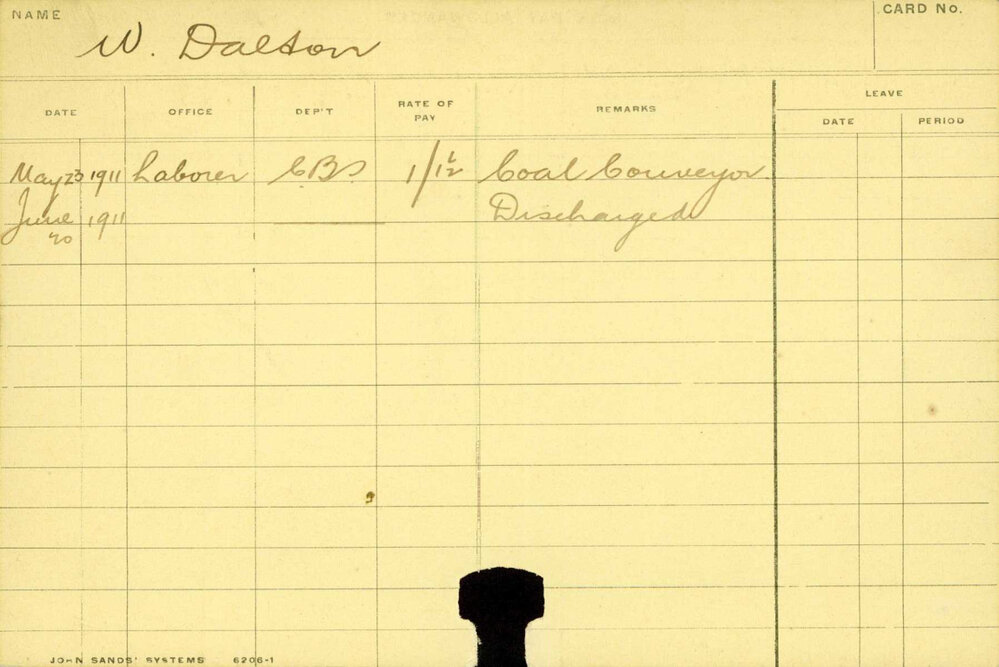 NAME
W. Dalton
CARD No.
DATE OFFICE DEP'T RATE OF PAY REMARKS LEAVE
DATE PERIOD
May 23 1911 Laborer 1/1½ Coal Conveyor
June 20 1911 Discharged
JOHN SANDS' SYSTEMS 6206-1